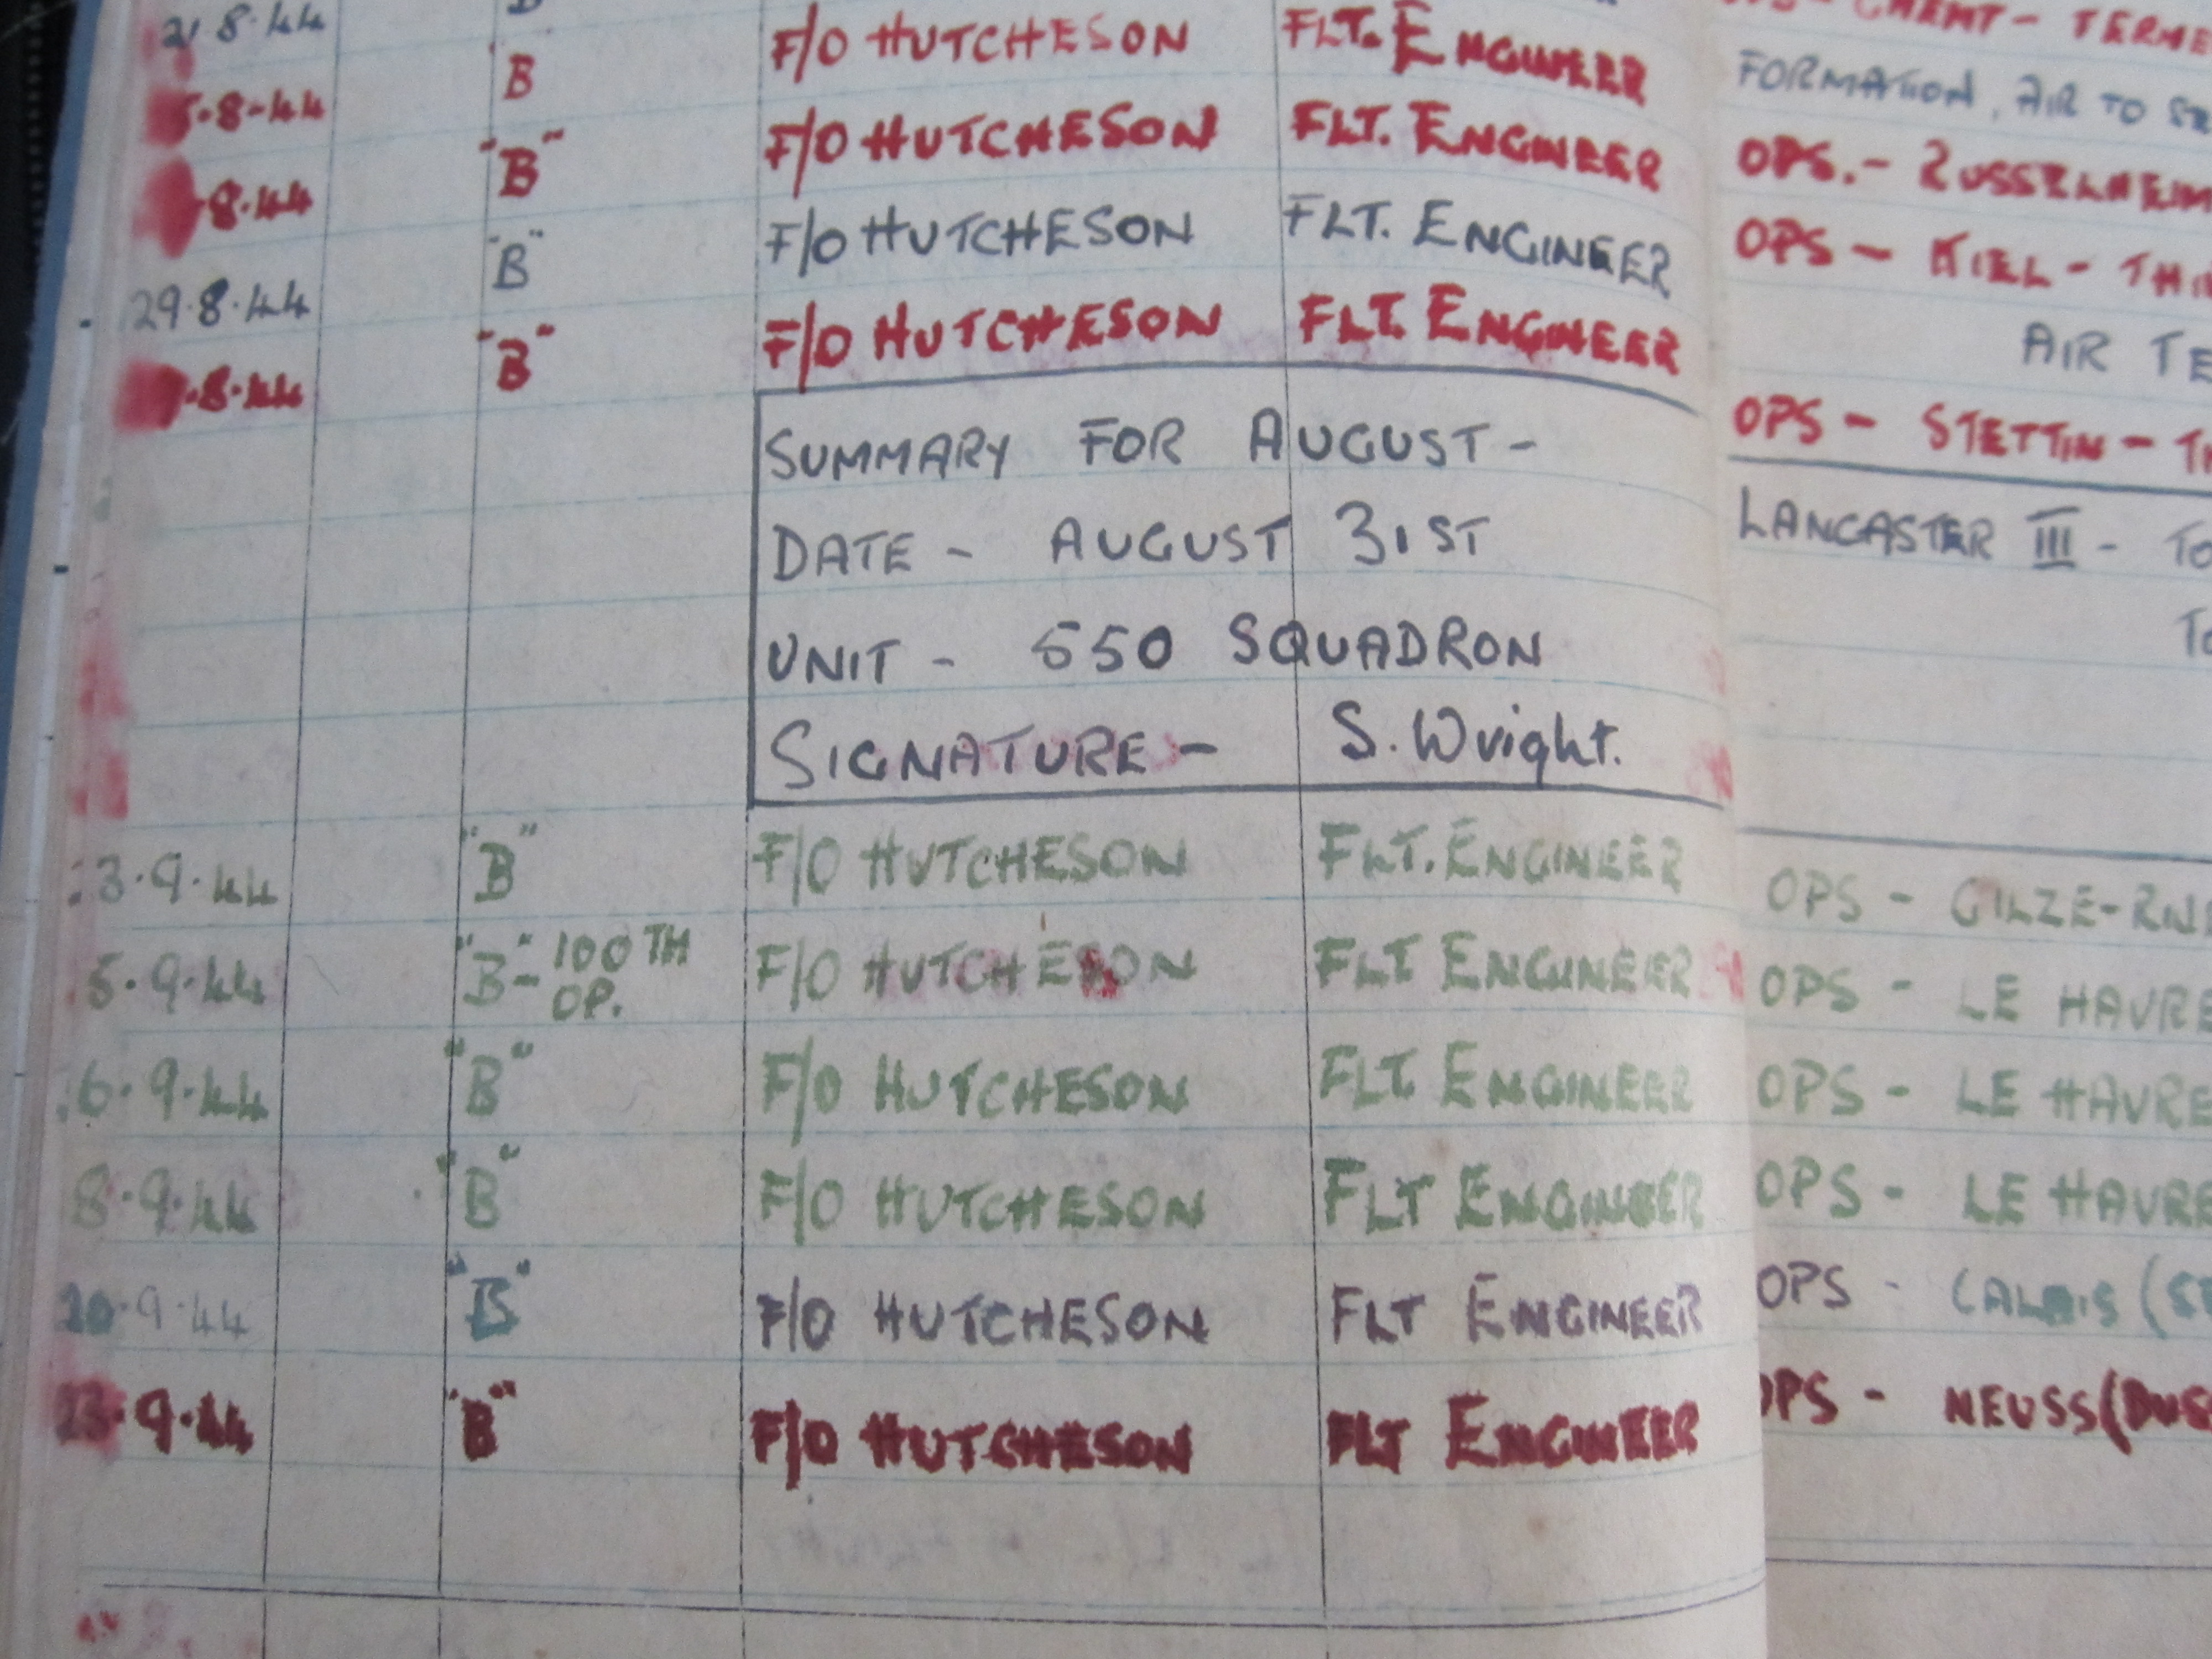 21.8.44
"B" F/O HUTCHESON FLT. ENGINEER GHENT - TERNE
.8-44 FORMATION, AIR TO SE
"B" F/O HUTCHESON FLT. ENGINEER OPS. - RUSSELHEIM
8.44
"B" F/O HUTCHESON FLT. ENGINEER OPS - KIEL - TH
29.8.44 AIR TE
"B" F/O HUTCHESON FLT. ENGINEER OPS - STETTIN -
.8.44
SUMMARY FOR AUGUST - LANCASTER III -
DATE - AUGUST 31ST
UNIT - 550 SQUADRON
SIGNATURE - S. Wright.
3.9.44 "B" F/O HUTCHESON FLT. ENGINEER OPS - GILZE-
5.9.44 "B" - 100TH OP. F/O HUTCHESON FLT ENGINEER OPS - LE HAVRE
6.9.44 "B" F/O HUTCHESON FLT. ENGINEER OPS - LE HAVRE
8.9.44 "B" F/O HUTCHESON FLT ENGINEER OPS - LE HAVRE
20.9.44 "B" F/O HUTCHESON FLT ENGINEER OPS - CALAIS (
23.9.44 "B" F/O HUTCHESON FLT ENGINEER OPS - NEUSS (DUS